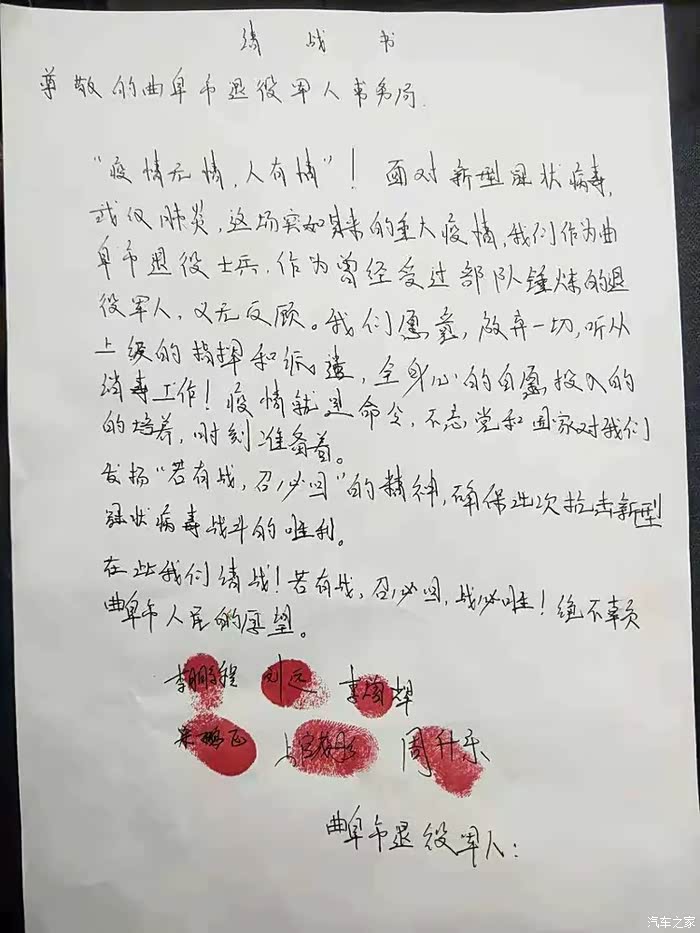 请战书
尊敬的曲阜市退役军人事务局.
“疫情无情,人有情”! 面对新型冠状病毒,
武汉肺炎,这场突如其来的重大疫情,我们作为曲
阜市退役士兵,作为曾经受过部队锤炼的退
役军人,义无反顾。我们愿意,放弃一切,听从
上级的指挥和派遣,全身心的自愿投入的
消毒工作!疫情就是命令,不忘党和国家对我们
的培养,时刻准备着。
发扬“若有战,召必回”的精神,确保此次抗击新型
冠状病毒战斗的胜利。
在此我们请战!若有战,召必回,战必胜!绝不辜负
曲阜市人民的厚望。
李鹏程 刘远
周升乐
曲阜市退役军人:
汽车之家